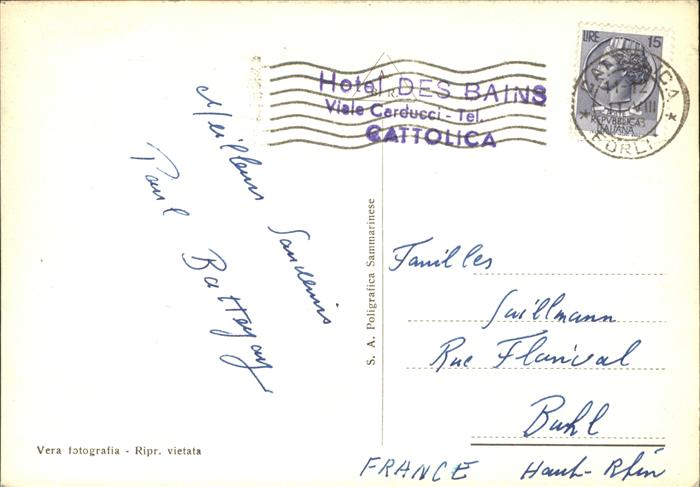 Hotel DES BAINS
Viale Carducci - Tel.
CATTOLICA
LIRE 15
REPVBBLICA
ITALIANA
CATTOLICA
FORLI
Meilleurs Souvenirs
Paul
S. A. Poligrafica Sammarinese
Familles
Rue
Buhl
FRANCE Haut-Rhin
Vera fotografia - Ripr. vietata